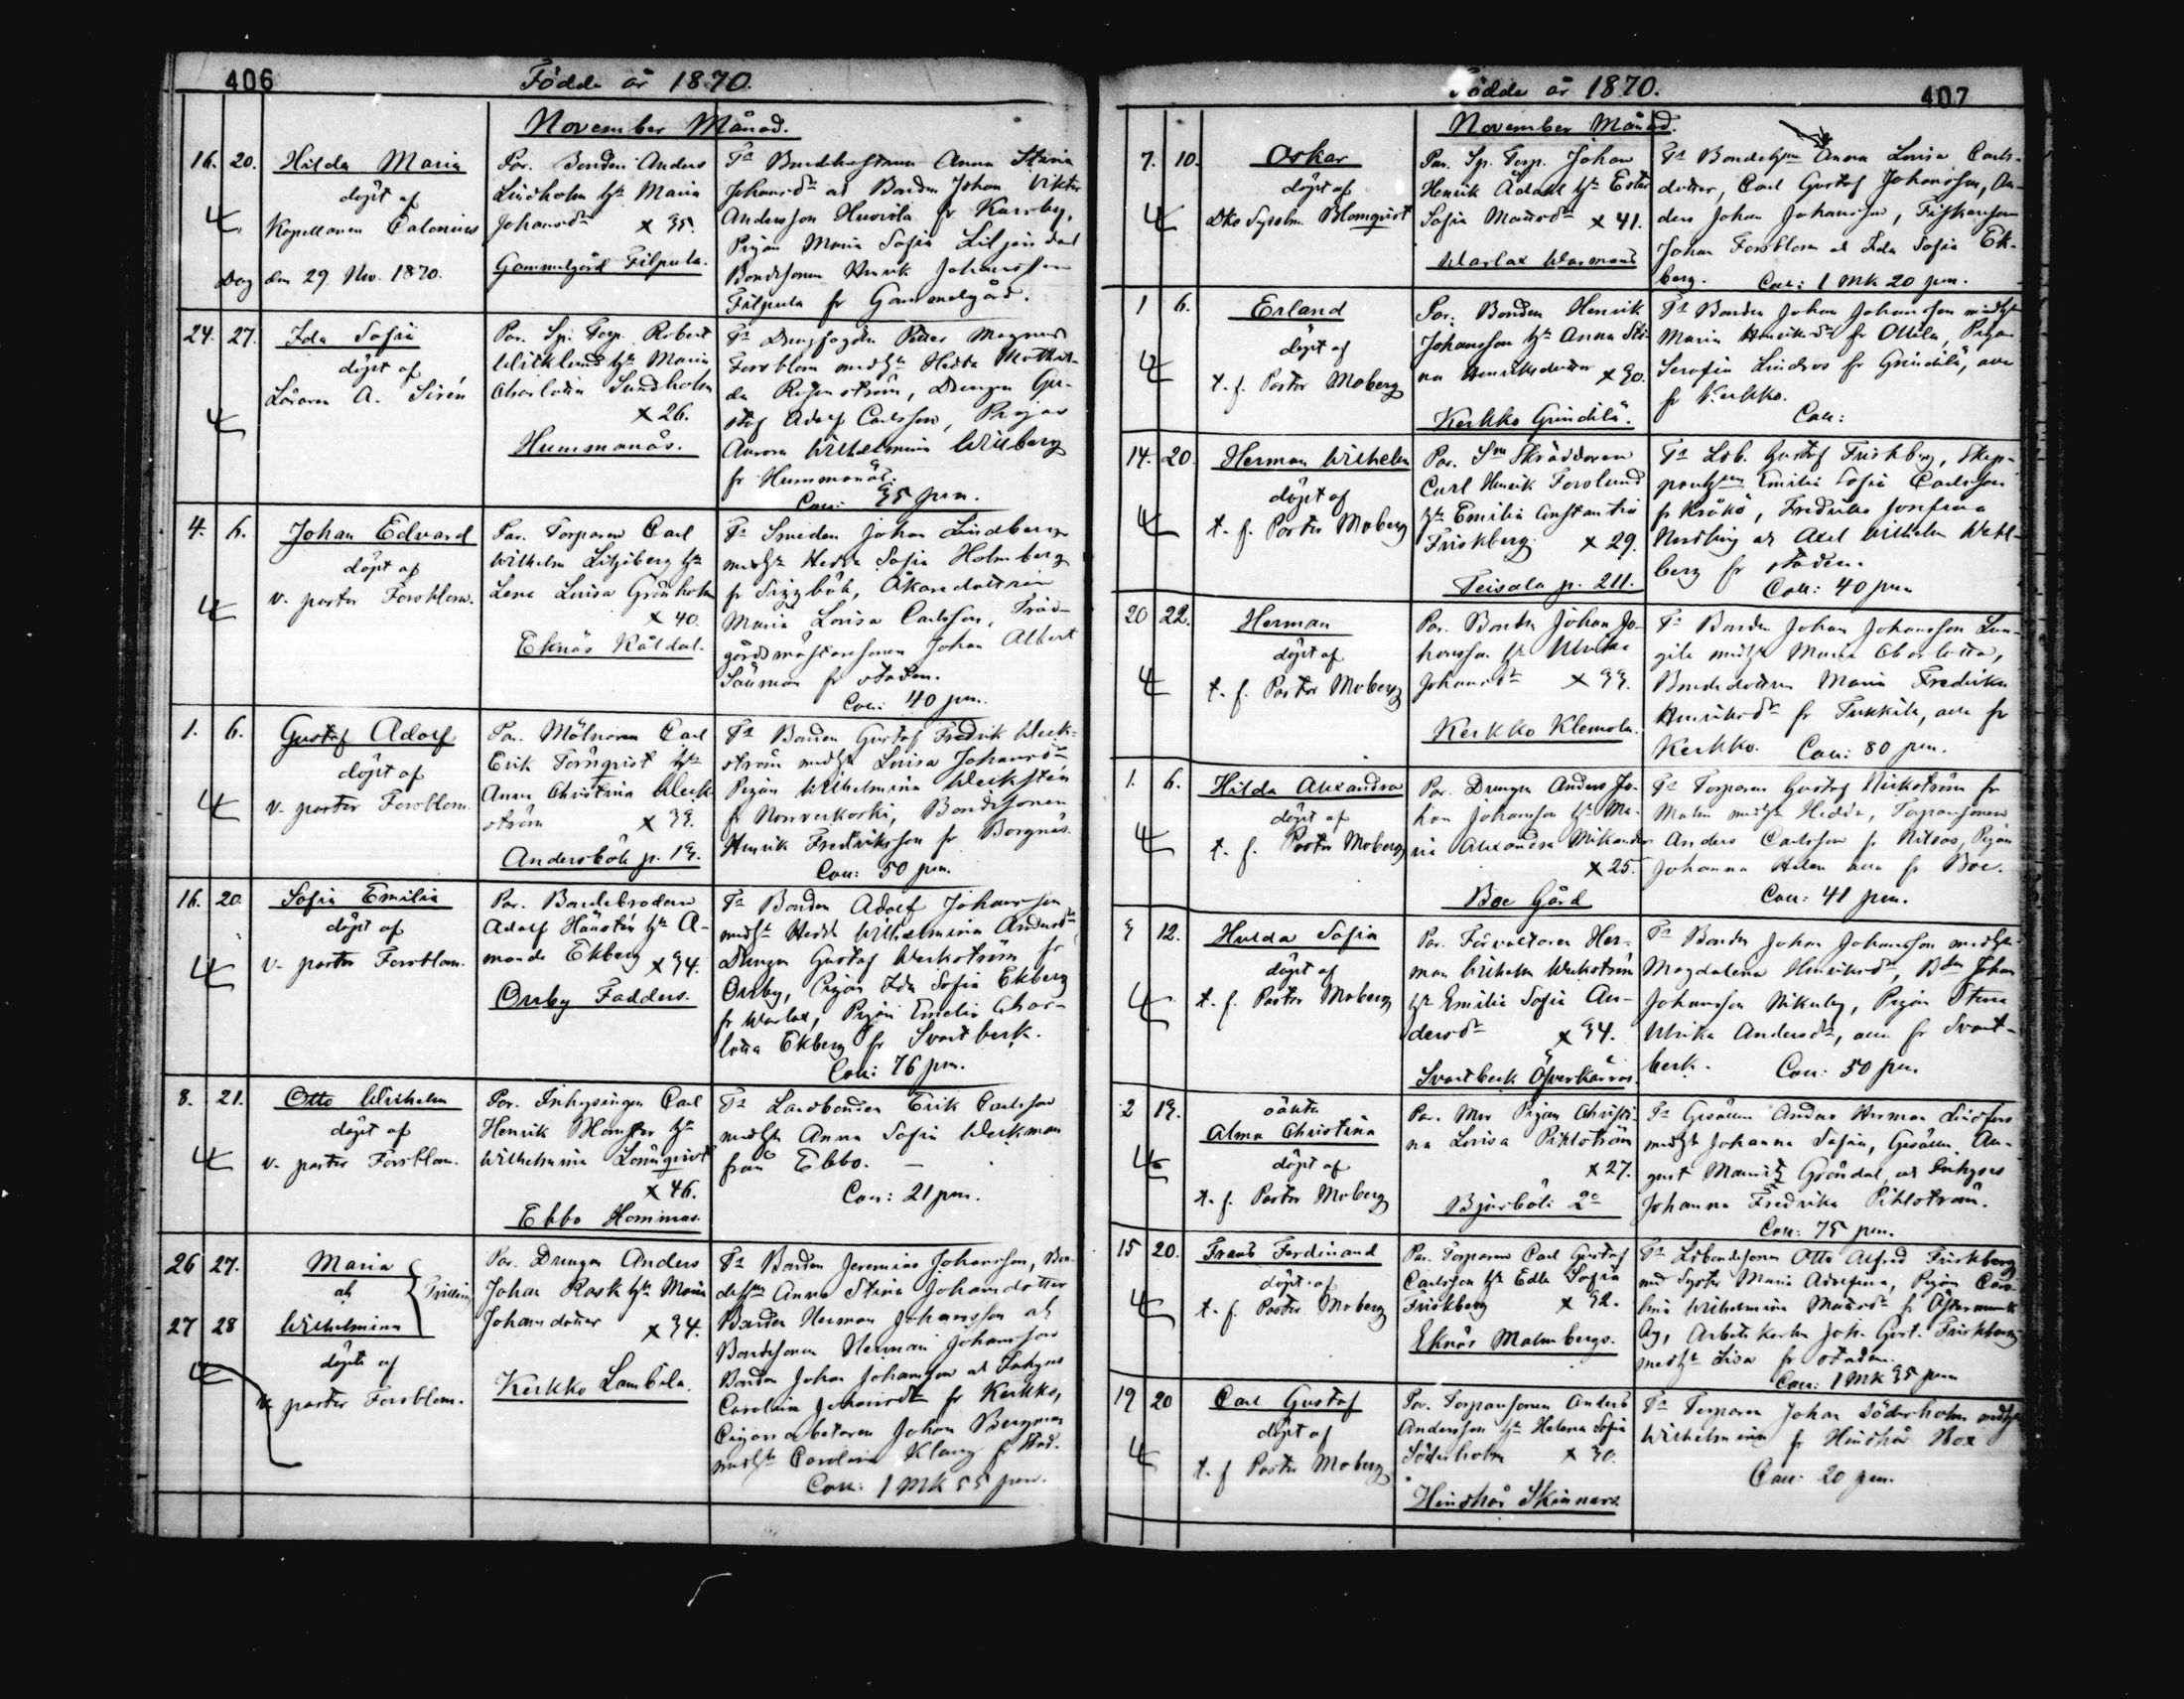 406
Födde år 1870.
November Månad.
16. 20. Hilda Maria
döpt af
Kapellanen Calonius
Dag den 29 Nov. 1870.
Par. Bonden Anders
Lindholm h. Maria
Johansdr x 35.
Gammelgård Filpula.
Fr Bondehustrun Anna Stina
Johansdr och Bonden Johan Viktor
Andersson Huovila fr Karsby,
Pigan Maria Sofia Liljendal
Bondsonen Henrik Johansson
Filpula fr Gammelgård.
24. 27. Ida Sofia
döpt af
Läraren A. Sirén
Par. Sp. Torp. Robert
Wicklund h. Maria
Charlotta Sundholm
x 26.
Hummonäs.
Fr Drengfogden Petter Magnus
Forsblom med h. Hedda Mathil-
da Rosenström, Drengen Gu-
staf Adolf Carlsson, Pigan
Aurora Wilhelmina Willberg
fr Hummonäs.
Coll: 35 pen.
4. 6. Johan Edvard
döpt af
v. pastor Forsblom.
Par. Torparen Carl
Wilhelm Liljeberg h.
Lena Lovisa Grönholm
x 40.
Eknäs Råldal.
Fr Smeden Johan Lindberg
med h. Hedda Sofia Holmberg
fr Siggböle, Åkaredottren
Maria Lovisa Carlsson, Träd-
gårdsmästaresonen Johan Albert
fr staden.
Coll: 40 pen.
1. 6. Gustaf Adolf
döpt af
v. pastor Forsblom.
Par. Mölnaren Carl
Erik Törnqvist h.
Anna Christina Weck-
ström x 39.
Andersböle p. 19.
Fr Bonden Gustaf Fredrik Weck-
ström med h. Lovisa Johansdr
Pigan Wilhelmina Weckstén
fr Norrverkoski, Bondesonen
Henrik Fredriksson fr Borgnäs.
Coll: 50 pen.
16. 20. Sofia Emilia
döpt af
v. pastor Forsblom.
Par. Bondebrodern
Adolf Hänstén h. A-
manda Ekberg x 34.
Orrby Fadders.
Fr Bonden Adolf Johansson
med h. Hedda Wilhelmina Andersdr
Drengen Gustaf Weckström fr
Orrby, Pigan Ida Sofia Ekberg
fr Warlax, Pigan Emelia Char-
lotta Ekberg fr Svartbeck.
Coll: 76 pen.
8. 21. Otto Wilhelm
döpt af
v. pastor Forsblom.
Par. Inhysingen Carl
Henrik Blomster h.
Wilhelmina Lönnqvist
x 46.
Ebbo Hommas.
Fr Landbonden Erik Carlsson
med h. Anna Sofia Weckman
från Ebbo.
Coll: 21 pen.
26 27. Maria
och Tvilling
27 28 Wilhelmina
döpte af
v. pastor Forsblom.
Par. Drengen Anders
Johan Rask h. Maria
Johansdotter x 34.
Kerkko Lambila.
Fr Bonden Jeremias Johansson, Bon-
dehn Anna Stina Johansdotter
Bonden Herman Johansson och
Bondesonen Herman Johansson
Bonden Johan Johansson och Inhyses
Carolina Johansdr fr Kerkko,
Cigarrarbetaren Johan Bergman
med h. Carolina Klang fr Stad.
Coll: 1 Mk 55 pen.
407
Födde år 1870.
November Månad.
7. 10. Oskar
döpt af
Dks Sysslm. Blomqvist
Par. Sp. Torp. Johan
Henrik Ådahl h. Ester
Sofia Mattsdr x 41.
Warlax Warmans
Fr Bondehn Anna Lovisa Carls-
dotter, Carl Gustaf Johansson, An-
ders Johan Johansson, Fiskaresonen
Johan Forsblom och Ida Sofia Ek-
berg. Coll: 1 Mk 20 pen.
1 6. Erland
döpt af
t. f. Pastor Moberg
Par. Bonden Henrik
Johansson h. Anna Sti-
na Henriksdotter x 30.
Kerkko Grindilä.
Fr Bonden Johan Johansson med h.
Maria Henriksdr fr Ollila, Pigan
Serafia Lindroos fr Grindilä, alla
fr Kerkko.
Coll:
14. 20. Herman Wilhelm
döpt af
t. f. Pastor Moberg
Par. Sn Skräddaren
Carl Henrik Forslund
h. Emilia Constantia
Friskberg x 29.
Teisala p. 211.
Fr Ldb. Gustaf Friskberg, Skep-
parehn Emilia Sofia Carlsson
fr Kråkö, Fredrika Josefina
Nordling och Axel Wilhelm Wahl-
berg fr staden.
Coll: 40 pen
20 22. Herman
döpt af
t. f. Pastor Moberg
Par. Bonden Johan Jo-
hansson h. Ulrika
Johansdr x 33.
Kerkko Klemola.
Fr Bonden Johan Johansson Lan-
gila med h. Maria Charlotta,
Bondedottren Maria Fredrika
Henriksdr fr Tukkila, alla fr
Kerkko. Coll: 80 pen.
1. 6. Hilda Alexandra
döpt af
t. f. Pastor Moberg
Par. Drengen Anders Jo-
han Johansson h. Ma-
ria Alexandra Mikander
x 25.
Boe Gård
Fr Torparen Gustaf Nickström fr
Malm med h. Hedda, Torparsonen
Anders Carlsson fr Nitsas, Pigan
Johanna Helen alla fr Boe.
Coll: 41 pen.
3 12. Hulda Sofia
döpt af
t. f. Pastor Moberg
Par. Förvaltaren Her-
man Wilhelm Weckström
h. Emilia Sofia An-
dersdr x 34.
Svartbeck Öfverkärrs.
Fr Bonden Johan Johansson med h.
Magdalena Henriksdr, Bden Johan
Johansson Nikuby, Pigan Stina
Ulrika Andersdr, alla fr Svart-
beck. Coll: 50 pen
2 19. oäkta
Alma Christina
döpt af
t. f. Pastor Moberg
Par. Mor Pigan Christi-
na Lovisa Pihlström
x 27.
Bjurböle 2o
Fr Gesällen Anders Herman Lindfors
med h. Johanna Sofia, Gesällen Au-
gust Mauritz Gröndal, och Inhyses
Johanna Fredrika Pihlström.
Coll: 75 pen.
15 20. Frans Ferdinand
döpt af
t. f. Pastor Moberg
Par. Torparen Carl Gustaf
Carlsson h. Edla Sofia
Friskberg x 32.
Eknäs Malmbergs.
Fr Ldbondesonen Otto Alfred Friskberg
med Syster Maria Adolfina, Pigan Caro-
lina Wilhelmina Mattsdr fr Östermunk-
by, Arbetskarlen Joh. Gust. Friskberg
med h. Lisa fr staden.
Coll: 1 Mk 35 pen
19 20 Carl Gustaf
döpt af
t. f Pastor Moberg
Par. Torparsonen Anders
Andersson h. Helena Sofia
Söderholm x 30.
Hindhår Skinnars.
Fr Torparen Johan Söderholm med h.
Wilhelmina fr Hindhår Box
Coll: 20 pen.